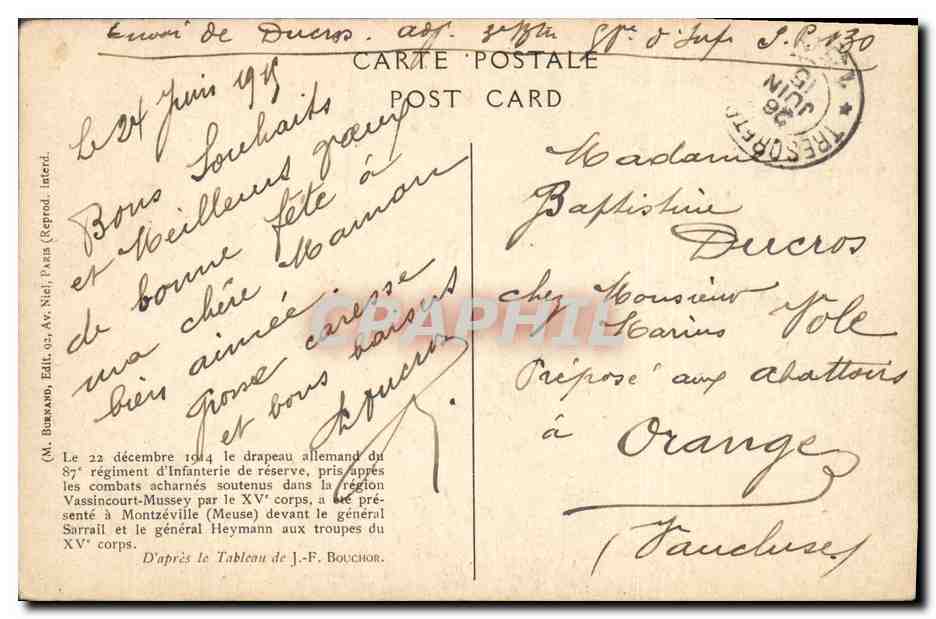 Envoi de Ducros. adj. 3e Btn d'Inf S. P. N 30
CARTE POSTALE
POST CARD
Le 24 Juin 1915
Bons Souhaits
et Meilleurs
de bonne fête à
ma chère Maman
bien aimée.
Grosse caresse
et bons baisers
Ducros
Madame
Baptistine
Ducros
chez Monsieur
Marius Vole
Préposé aux abattoirs
à Orange
(Vaucluse)
TRESOR ET
26
JUIN
15
CPARHIL
(M. Burnand, Edit. 92, Av. Niel, Paris (Reprod. Interd.
Le 22 décembre 1914 le drapeau allemand du
87e régiment d'Infanterie de réserve, pris après
les combats acharnés soutenus dans la région
Vassincourt-Mussey par le XVe corps, a été pré-
senté à Montzéville (Meuse) devant le général
Sarrail et le général Heymann aux troupes du
XVe corps.
D'après le Tableau de J.-F. Bouchor.